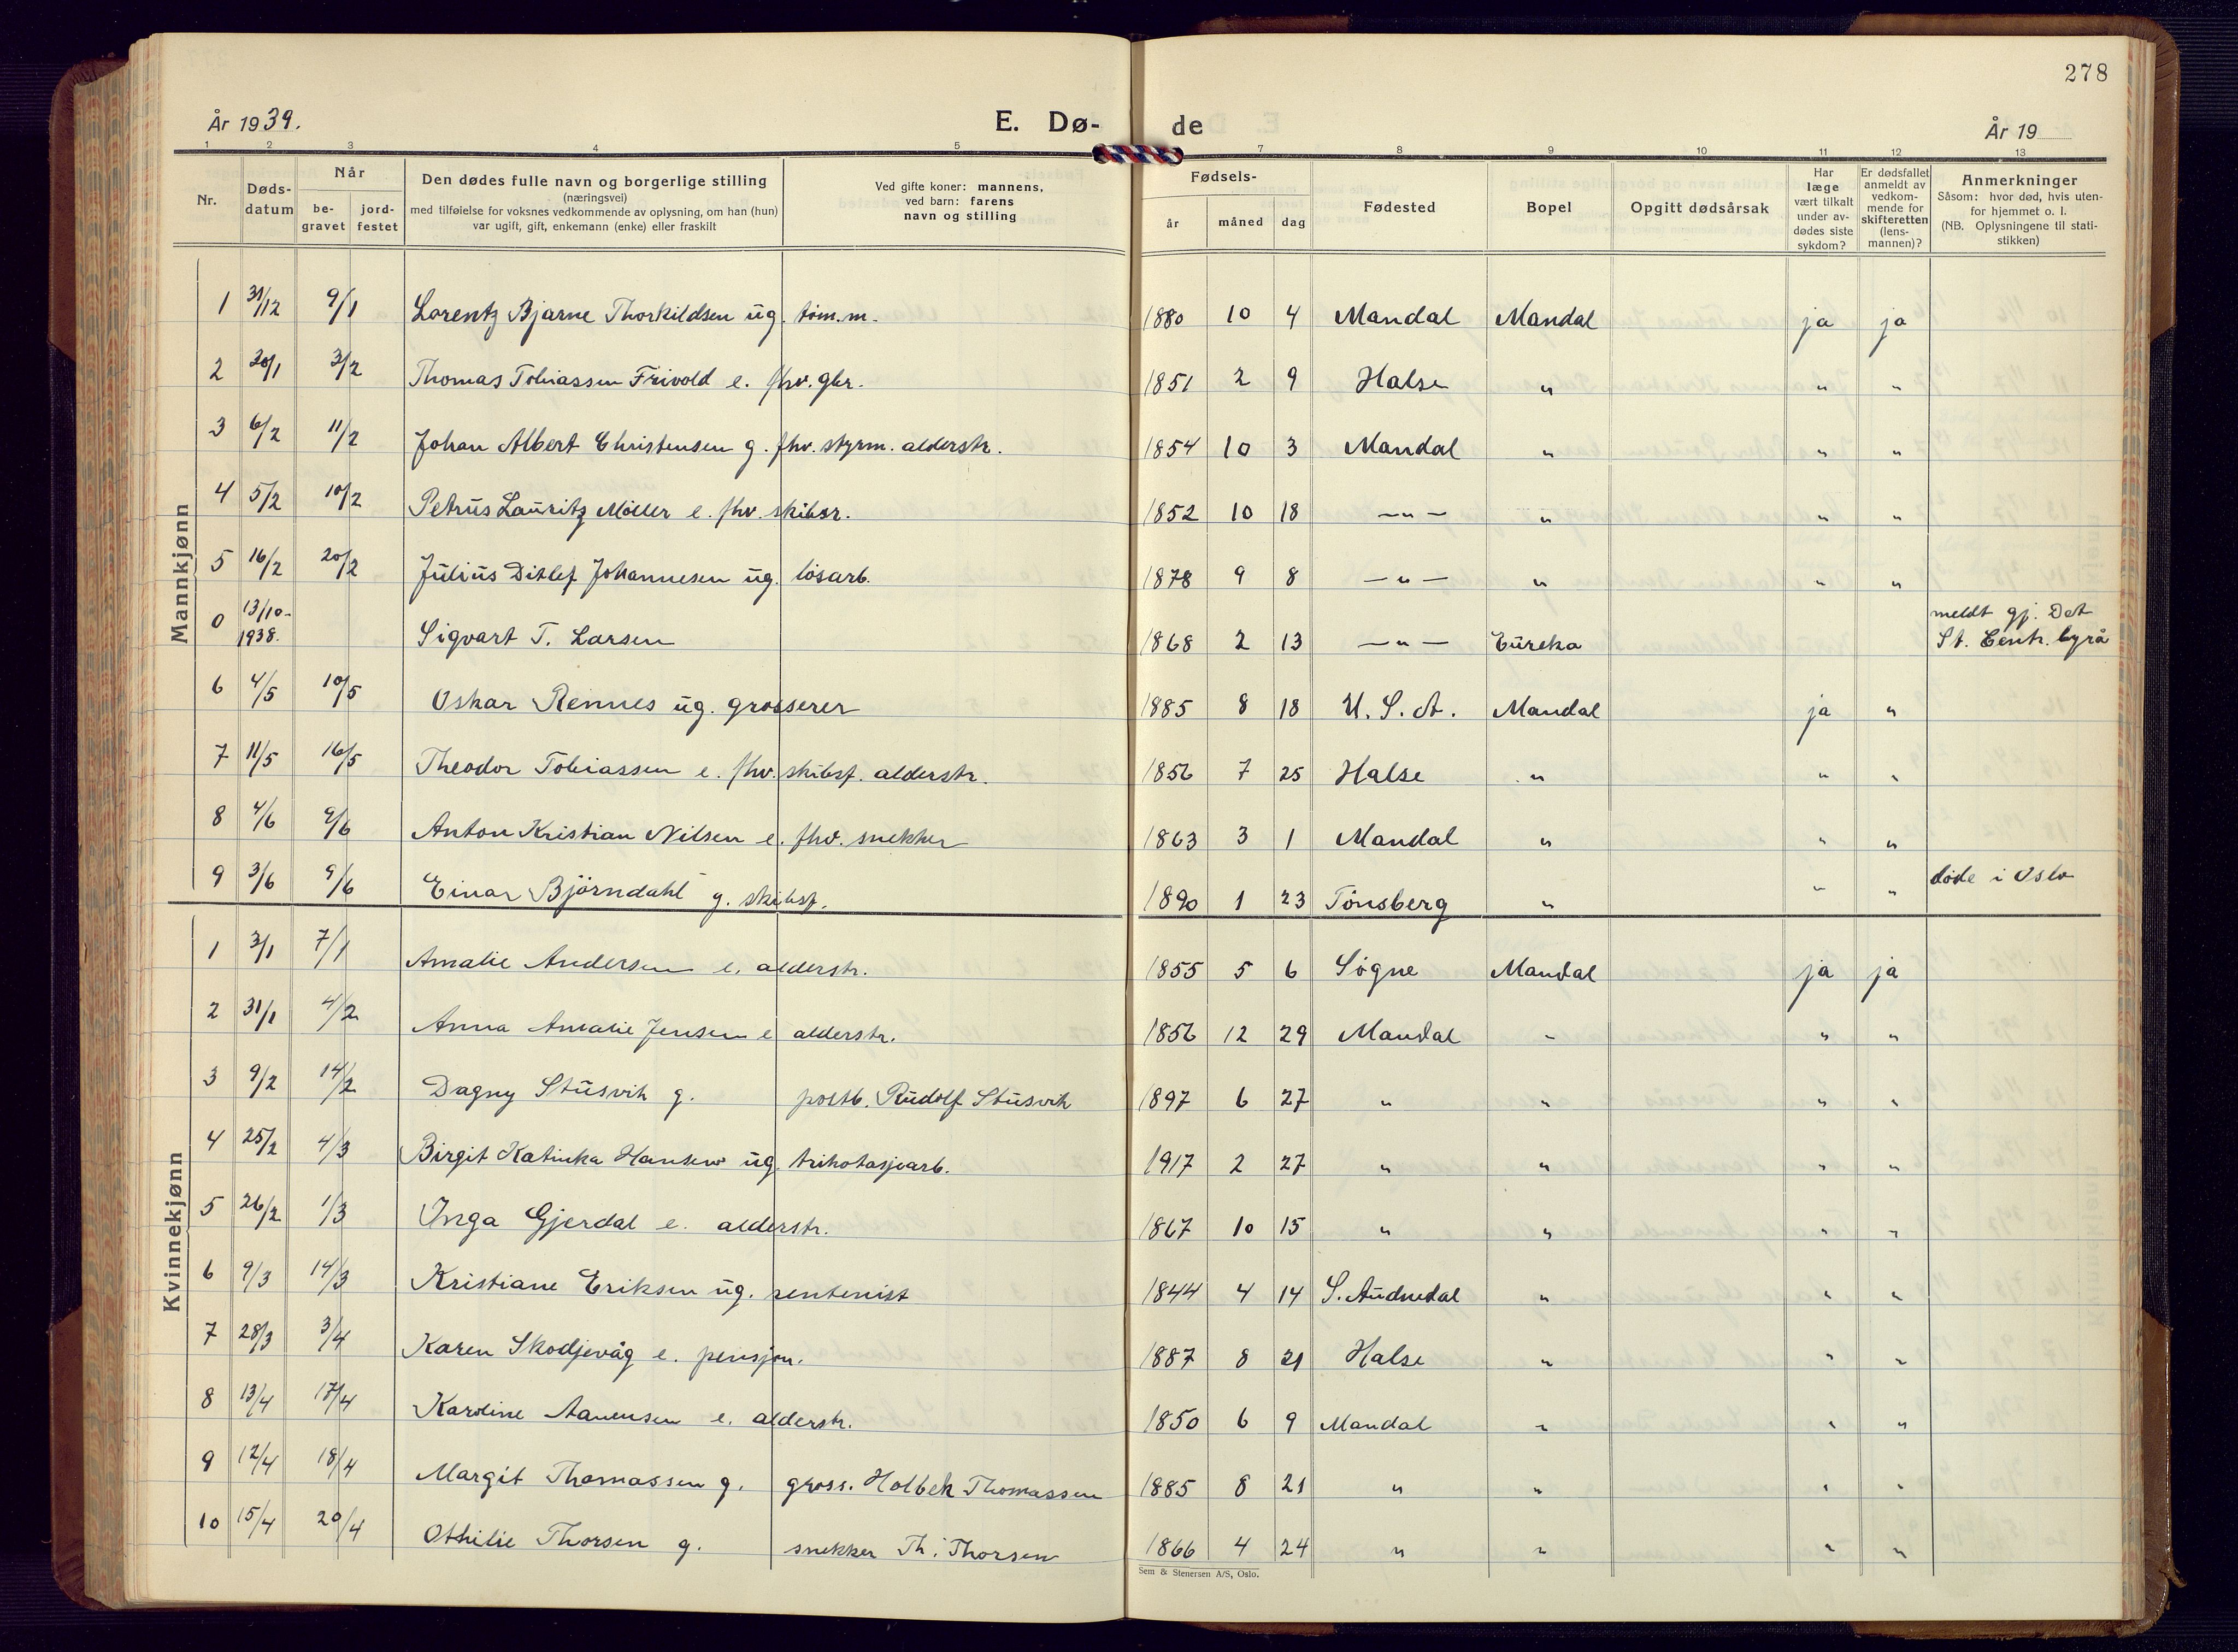 278
År 1939.
E. Dø-
de
År 19
1 2 3 4 5 7 8 9 10 11 12 13
Nr.
Døds-
datum
Når
be-
gravet
jord-
festet
Den dødes fulle navn og borgerlige stilling
(næringsvei)
med tilføielse for voksnes vedkommende av oplysning, om han (hun)
var ugift, gift, enkemann (enke) eller fraskilt
Ved gifte koner: mannens,
ved barn: farens
navn og stilling
Fødsels-
år måned dag
Fødested
Bopel
Opgitt dødsårsak
Har
læge
vært tilkalt
under av-
dødes siste
sykdom?
Er dødsfallet
anmeldt av
vedkom-
mende for
skifteretten
(lens-
mannen)?
Anmerkninger
Såsom: hvor død, hvis uten-
for hjemmet o. l.
(NB. Oplysningene til stati-
stikken)
Mannkjønn
1 31/12 9/1 Lorentz Bjarne Thorkildsen ug. tøm.m. 1880 10 4 Mandal Mandal ja ja
2 30/1 3/2 Thomas Tobiassen Frivold e. fhv. gbr. 1851 2 9 Halse " " "
3 6/2 11/2 Johan Albert Christensen g. fhv. styrm. alderstr. 1854 10 3 Mandal " " "
4 5/2 10/2 Petrus Lauritz Møller e. fhv. skibsr. 1852 10 18 —"— " " "
5 16/2 20/2 Julius Ditlef Johannesen ug. løsarb. 1878 9 8 —"— " " "
0 13/10- 1938. Sigvart T. Larsen 1868 2 13 —"— Eureka meldt gj. Det
St. Centr. byrå
6 4/5 10/5 Oskar Rennes ug. grosserer 1885 8 18 U. S. A. Mandal ja "
7 11/5 16/5 Theodor Tobiassen e. fhv. skibsf. alderstr. 1856 7 25 Halse " " "
8 4/6 9/6 Anton Kristian Nilsen e. fhv. snekker 1863 3 1 Mandal " " "
9 3/6 9/6 Einar Bjørndahl g. skibsf. 1890 1 23 Tønsberg " " " døde i Oslo
Kvinnekjønn
1 3/1 7/1 Amalie Andersen e. alderstr. 1855 5 6 Søgne Mandal ja ja
2 31/1 4/2 Anna Amalie Jensen e alderstr. 1856 12 29 Mandal " " "
3 9/2 14/2 Dagny Stusvik g. postb. Rudolf Stusvik 1897 6 27 " " " "
4 25/2 4/3 Birgit Katinka Hansen ug. trikotasjearb. 1917 2 27 " " " "
5 26/2 1/3 Inga Gjerdal e. alderstr. 1867 10 15 " " " "
6 9/3 14/3 Kristiane Eriksen ug. rentenist 1844 4 14 S. Audnedal " " "
7 28/3 3/4 Karen Skodjevåg e. pensjon. 1887 8 21 Halse " " "
8 13/4 17/4 Karoline Aanensen e. alderstr. 1850 6 9 Mandal " " "
9 12/4 18/4 Margit Thomassen g. gross. Holbek Thomassen 1885 8 21 " " " "
10 15/4 20/4 Othilie Thorsen g. snekker Th. Thorsen 1866 4 24 " " " "
Sem & Stenersen A/S, Oslo.